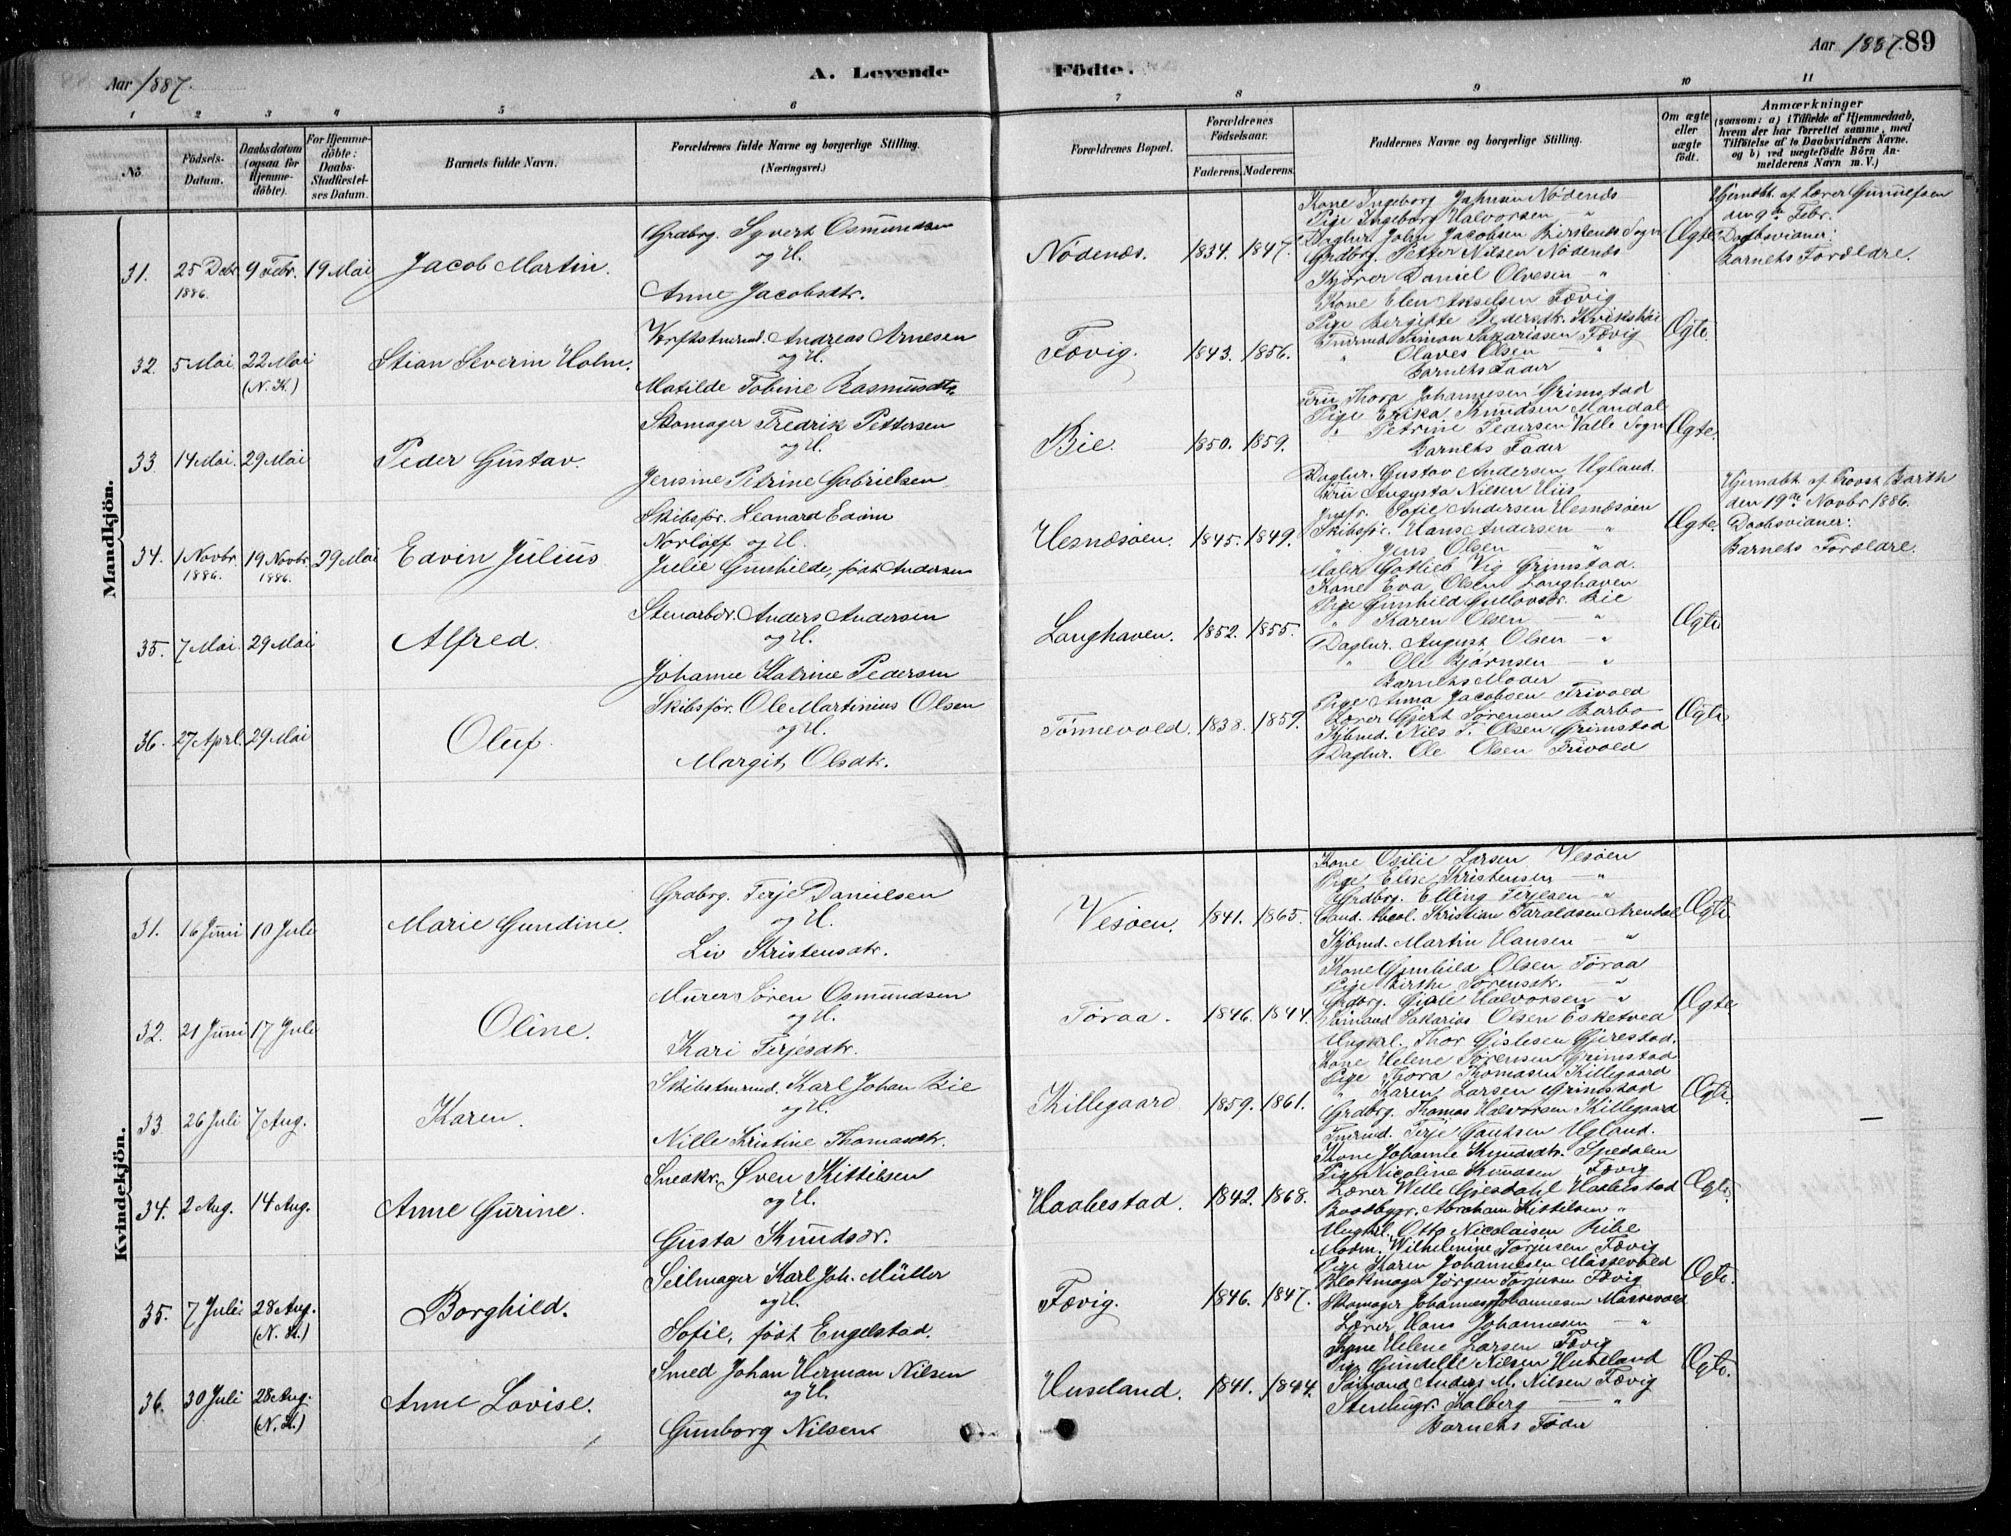 Aar 1887. A. Levende
1 2 3 4 5 6
No.
Födsels-Datum.
Daabsdatum (ogsaa for Hjemme-döbte).
For Hjemme-döbte: Daabs-Stadfæstel-ses Datum.
Barnets fulde Navn.
Forældrenes fulde Navne og borgerlige Stilling.
(Næringsvei.)
Födte. Aar 1887. 89
7 8 9 10 11
Forældrenes Bopæl.
Forældrenes Födselsaar.
Faderens. Moderens.
Faddernes Navne og borgerlige Stilling.
Om ægte eller uægte födt.
Anmærkninger
(saasom: a) i Tilfælde af Hjemmedaab, hvem der har forrettet samme, med Tilföielse af to Daabsvidners Navne. og b) ved uægtefödte Börn An-melderens Navn m. V.)
Mandkjön.
31. 25 Debr 1886. 9 Febr. 19 Mai Jacob Martin.
Grdbrg. Syvert Osmundsen
og H.
Anne Jacobsdtr.
Nødenæs. 1834. 1847.
Kone Ingeborg Johnsen Nødenæs
Pige Ingeborg Halvorsen — "
Daglnr. John Jacobsen Birkenæs Sogn
Grdbrg. Petter Nilsen Nødenæs
Daniel Olvesen — "
Ægte
Hjemdbt. af Lærer Gunulfsen
den 9de Febr.
Daabsvidner:
Barnets Forældre.
32. 5 Mai. 22 Mai (N.K.) Stian Severin Holm.
Verftstmrmd. Andreas Arnesen
og H.
Matilde Tobine Rasmusdtr.
Fævig. 1843. 1856.
Kone Elen Akselsen Fævig
Pige Bergitte Pedersdtr.
Tmrmd. Simon Sakariasen Fævig
" Olaves Olsen — "
Barnets Fader
Ægte.
33. 14 Mai. 29 Mai Peder Gustav.
Skomager Fredrik Pettersen
og H.
Jensine Petrine Gabrielsen
Bie. 1850. 1859.
Fru Thora Johannesen Grimstad
Pige Erika Knudsen Mandal
" Petrine Pedersen Valle Sogn
Barnets Fader
Daglnr. Gustav Andersen Ugland.
Ægte.
34. 1 Novbr. 1886. 19 Novbr. 1886. 29 Mai Edvin Julius
Skibsfør. Leonard Edvin
Norloff og H.
Julie Gunhilde, født Andersen
Hesnæsøen. 1845. 1849.
Fru Augusta Nilsen Hiis
Jmfr. Sofie Andersen Hesnæsøen
Skibsfør. Hans Andersen — "
" Jens Olsen — "
Maler Gotlieb Vig Grimstad.
Ægte.
Hjemdbt. af Provst Barth
den 19de Novbr 1886.
Daabsvidner:
Barnets Forældre.
35. 7 Mai. 29 Mai Alfred.
Stenarbdr. Anders Andersen
og H.
Johanne Katrine Pedersen
Longhaven. 1852. 1855.
Kone Eva Olsen Longhaven
Pige Gunhild Gullovsdtr. Bie
" Karen Olsen — "
Daglnr. August Olsen — "
" Ole Bjørnsen — "
Barnets Moder
Ægte
36. 27 Apri. 29 Mai Oluf.
Skibsfør. Ole Martinius Olsen
og H.
Margit Olsdtr.
Tønnevold. 1838. 1859.
Pige Anna Jacobsen Frivold
Lærer Gjert Sørensen Barbo
Kjbmd. Niels T. Olsen Grimstad
Daglnr. Ole Olsen Frivold
Ægte
Kvindekjön.
31. 16 Juni 10 Juli Marie Gundine.
Grdbrg. Terje Danielsen
og H.
Liv Kristensdtr.
Vesøen. 1841. 1865.
Kone Osilie Larsen Vesøen
Pige Elise Kristensen — "
Grdbrg. Elling Terjesen — "
Cand. theol. Kristian Taraldsen Arendal
Kjbmd. Martin Hansen — "
Ægte
32. 21 Juni 17 Juli Oline.
Murer Søren Osmundsen
og H.
Kari Terjesdtr.
Tøraa. 1846. 1844.
Kone Gunhild Olsen Tøraa
Pige Birthe Sørensdtr. — "
Grdbrg. Gisle Halvorsen — "
Sømand Sakarias Olsen Esketved
Ungkrl. Thor Gislesen Gjerestad.
Ægte
33. 26 Juli 7 Aug. Karen.
Skibstmrmd. Karl Johan Bie
og H.
Nille Kristine Thomasdtr.
Killegaard 1859. 1861.
Kone Helene Sørensen Grimstad
Pige Thora Thomasen Killegaard
" Karen Larsen Grimstad
Grdbrg. Thomas Halvorsen Killegaard
Tmrmd. Terje Gautsen Ugland.
Ægte.
—
34. 2 Aug. 14 Aug. Anne Gurine.
Snedkr. Øven Kittilsen
og H.
Gusta Knudsdr.
Haabestad. 1842. 1868.
Kone Johanne Knudsdtr. Spedalen
Pige Nicoline Knudsen Fævig
Lærer Wille Gjesdahl Haabestad
Baadbygr. Abraham Kittelsen "
Ungkrl. Otto Nicolaisen Ribe
Ægte.
35. 7 Juli 28 Aug. (N.K.) Borghild.
Seilmager Karl Joh. Müller
og H.
Sofie, født Engelstad.
Fævig. 1846. 1847.
Madm. Wilhelmine Torjusen Fævig
Pige Karen Johannesen Massevold
Blokmager Jørgen Torjusen Fævig
Skomager Johannes Johannesen Massevold
Lærer Hans Johannesen — "
Ægte.
36. 30 Juli 28 Aug. (N.K.) Anne Lovise.
Smed Johan Herman Nilsen
og H.
Gunborg Nilsen
Huseland. 1841. 1844.
Kone Helene Larsen Fævig
Pige Gundelle Nilsen Huseland
Sømand Anders M. Nilsen Fævig
Stenhugr. Kalberg — "
Barnets Fader
Ægte.